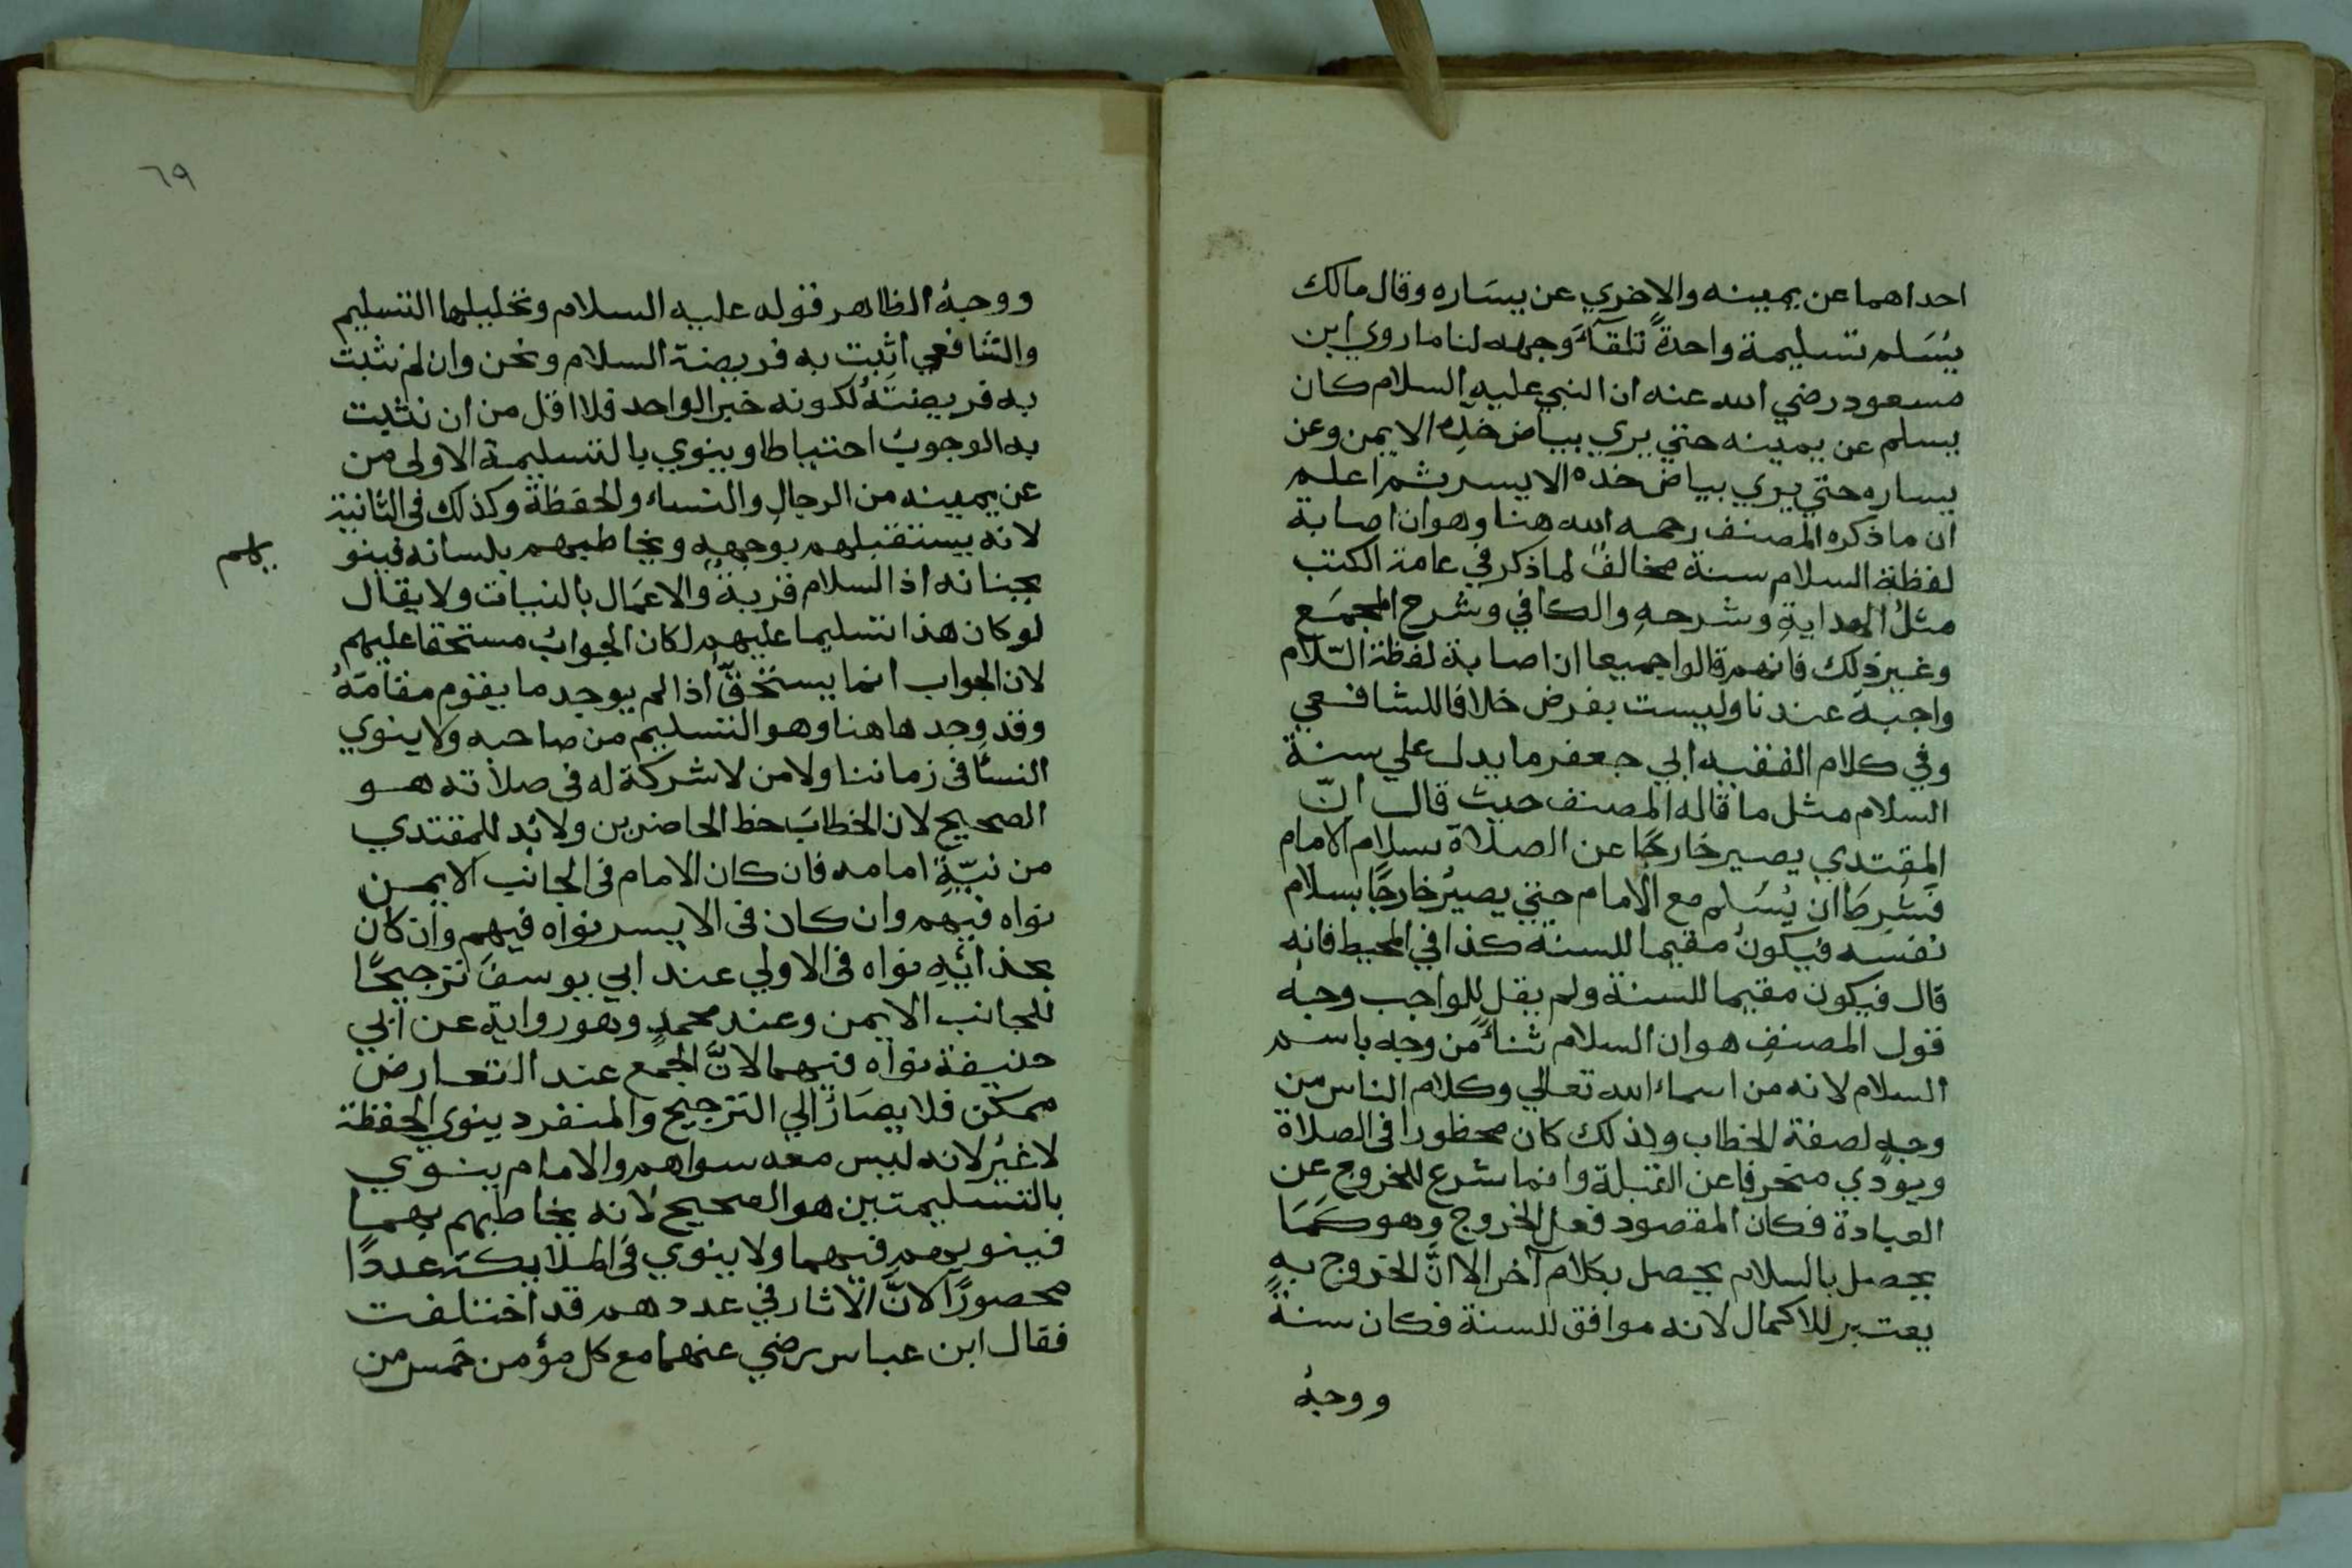 احداهما عن يمينه والاخري عن يسَاره وقال مالك
يُسَلم تسليمة واحدةً تلقآءَ وجهه لنا ما روي ابن
مسعود رضي الله عنه ان النبي عليه السلام كان
يسلم عن يمينه حتي يري بياض خدِه الايمن وعن
يساره حتي يري بياض خده الايسر ثم اعلم
ان ما ذكره المصنف رحمه الله هنا وهو ان اصابة
لفظة السلام سنة مخالفٌ لما ذكر في عامة الكتب
مثلُ الهدايةِ وشرحهِ والكافي وشرح المجمَع
وغير ذلك فانهم قالوا جميعا ان اصابة لفظة السّلام
واجبة عندنا وليست بفرض خلافا للشافعي
وفي كلام الفقيه ابي جعفر ما يدل علي سنة
السلام مثل ما قاله المصنف حيث قال انّ
المقتدي يصير خارجًا عن الصلاة بسلام الامام
فشرطَ ان يُسَلم مع الامام حتي يصيرُ خارجًا بسلام
نفسَه فيكونُ مقيما للسنة كذا في المحيط فانه
قال فيكون مقيما للسنة ولم يقل للواجب وجهُ
قول المصنفِ هو ان السلام ثناءً من وجه باسم
السلام لانه من اسماء الله تعالي وكلام الناس من
وجهٍ لصفة الخطاب ولذلك كان محظورا فى الصلاة
ويودي منحرفا عن القبلة وانما شرع للخروج عن
العبادة فكان المقصود فعل الخروج وهو كمَا
يحصل بالسلام يحصل بكلام آخر الا انَّ الخروج بهِ
يعتبر للاكمال لانه موافق للسنة فكان سنةً
ووجهُ
٦٩
ووجهُ الظاهر قوله عليه السلام وتحليلها التسليم
والشافعي اثبت به فريضة السلام ونحن وان لم نثبت
به فريضتَهُ لكونه خبر الواحد فلا اقل من ان نثبت
به الوجوبُ احتياطا وينوي بالتسليمة الاولى من
عن يمينه من الرجالِ والنساء والحفظة وكذلك فى الثانية
لانه يستقبلهم بوجههِ ويخاطبهم بلسانه فينو
يهم
بجنانه اذ السلام قربةٌ والاعمَال بالنيات ولا يقال
لو كان هذا تسليما عليهم لكان الجوابُ مستحقا عليهم
لان الجواب انما يستحقّ اذا لم يوجد ما يقوم مقامَهُ
وقد وجد هاهنا وهو التسليم من صاحبه ولا ينوي
النسأ فى زماننا ولا من لا شركة له فى صلاته هو
الصحيح لان الخطابَ حظ الحاضرين ولا بُد للمقتدي
من نيّةِ امامه فان كان الامام فى الجانب الايمن
نواه فيهم وان كان فى الايسر نواه فيهم وان كان
بحذائِهِ نواه فى الاولي عند ابي يوسفَ ترجيحًا
للجانب الايمن وعند محمدٍ وهو رواية عن ابي
حنيفة نواه فيهما لانَّ الجمع عند التعارض
ممكن فلا يصَارُ الي الترجيح والمنفرد ينوي الحفظة
لا غيُر لانه ليس معه سواهم والامام ينوي
بالتسليمتين هو الصحيح لانه يخاطبهم بهما
فينويهم فيهما ولا ينوي فى الملايكة عددًا
محصورًا لانَّ الاثار في عددهم قد اختلفت
فقال ابن عباس رضي عنهما مع كل مؤمن خمس من